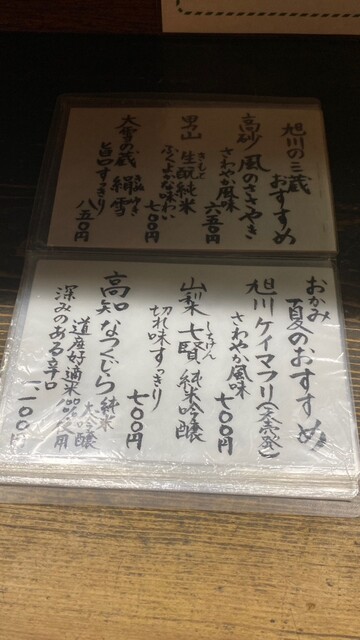 旭川の三蔵
おすすめ
高砂 風のささやき
さわやか風味
六五〇円
男山 生酛純米
きもと
ふくよかな味わい
七〇〇円
大雪の蔵 絹雪
きぬゆき
旨口すっきり
八五〇円
おかみ
夏のおすすめ
旭川ケイマフリ(蒸発)
さわやか風味
七〇〇円
山梨 七賢 純米吟醸
しちけん
切れ味すっきり
七〇〇円
高知 なつくじら 純米
大吟醸
道産好適米
使用
深みのある辛口
一一〇〇円